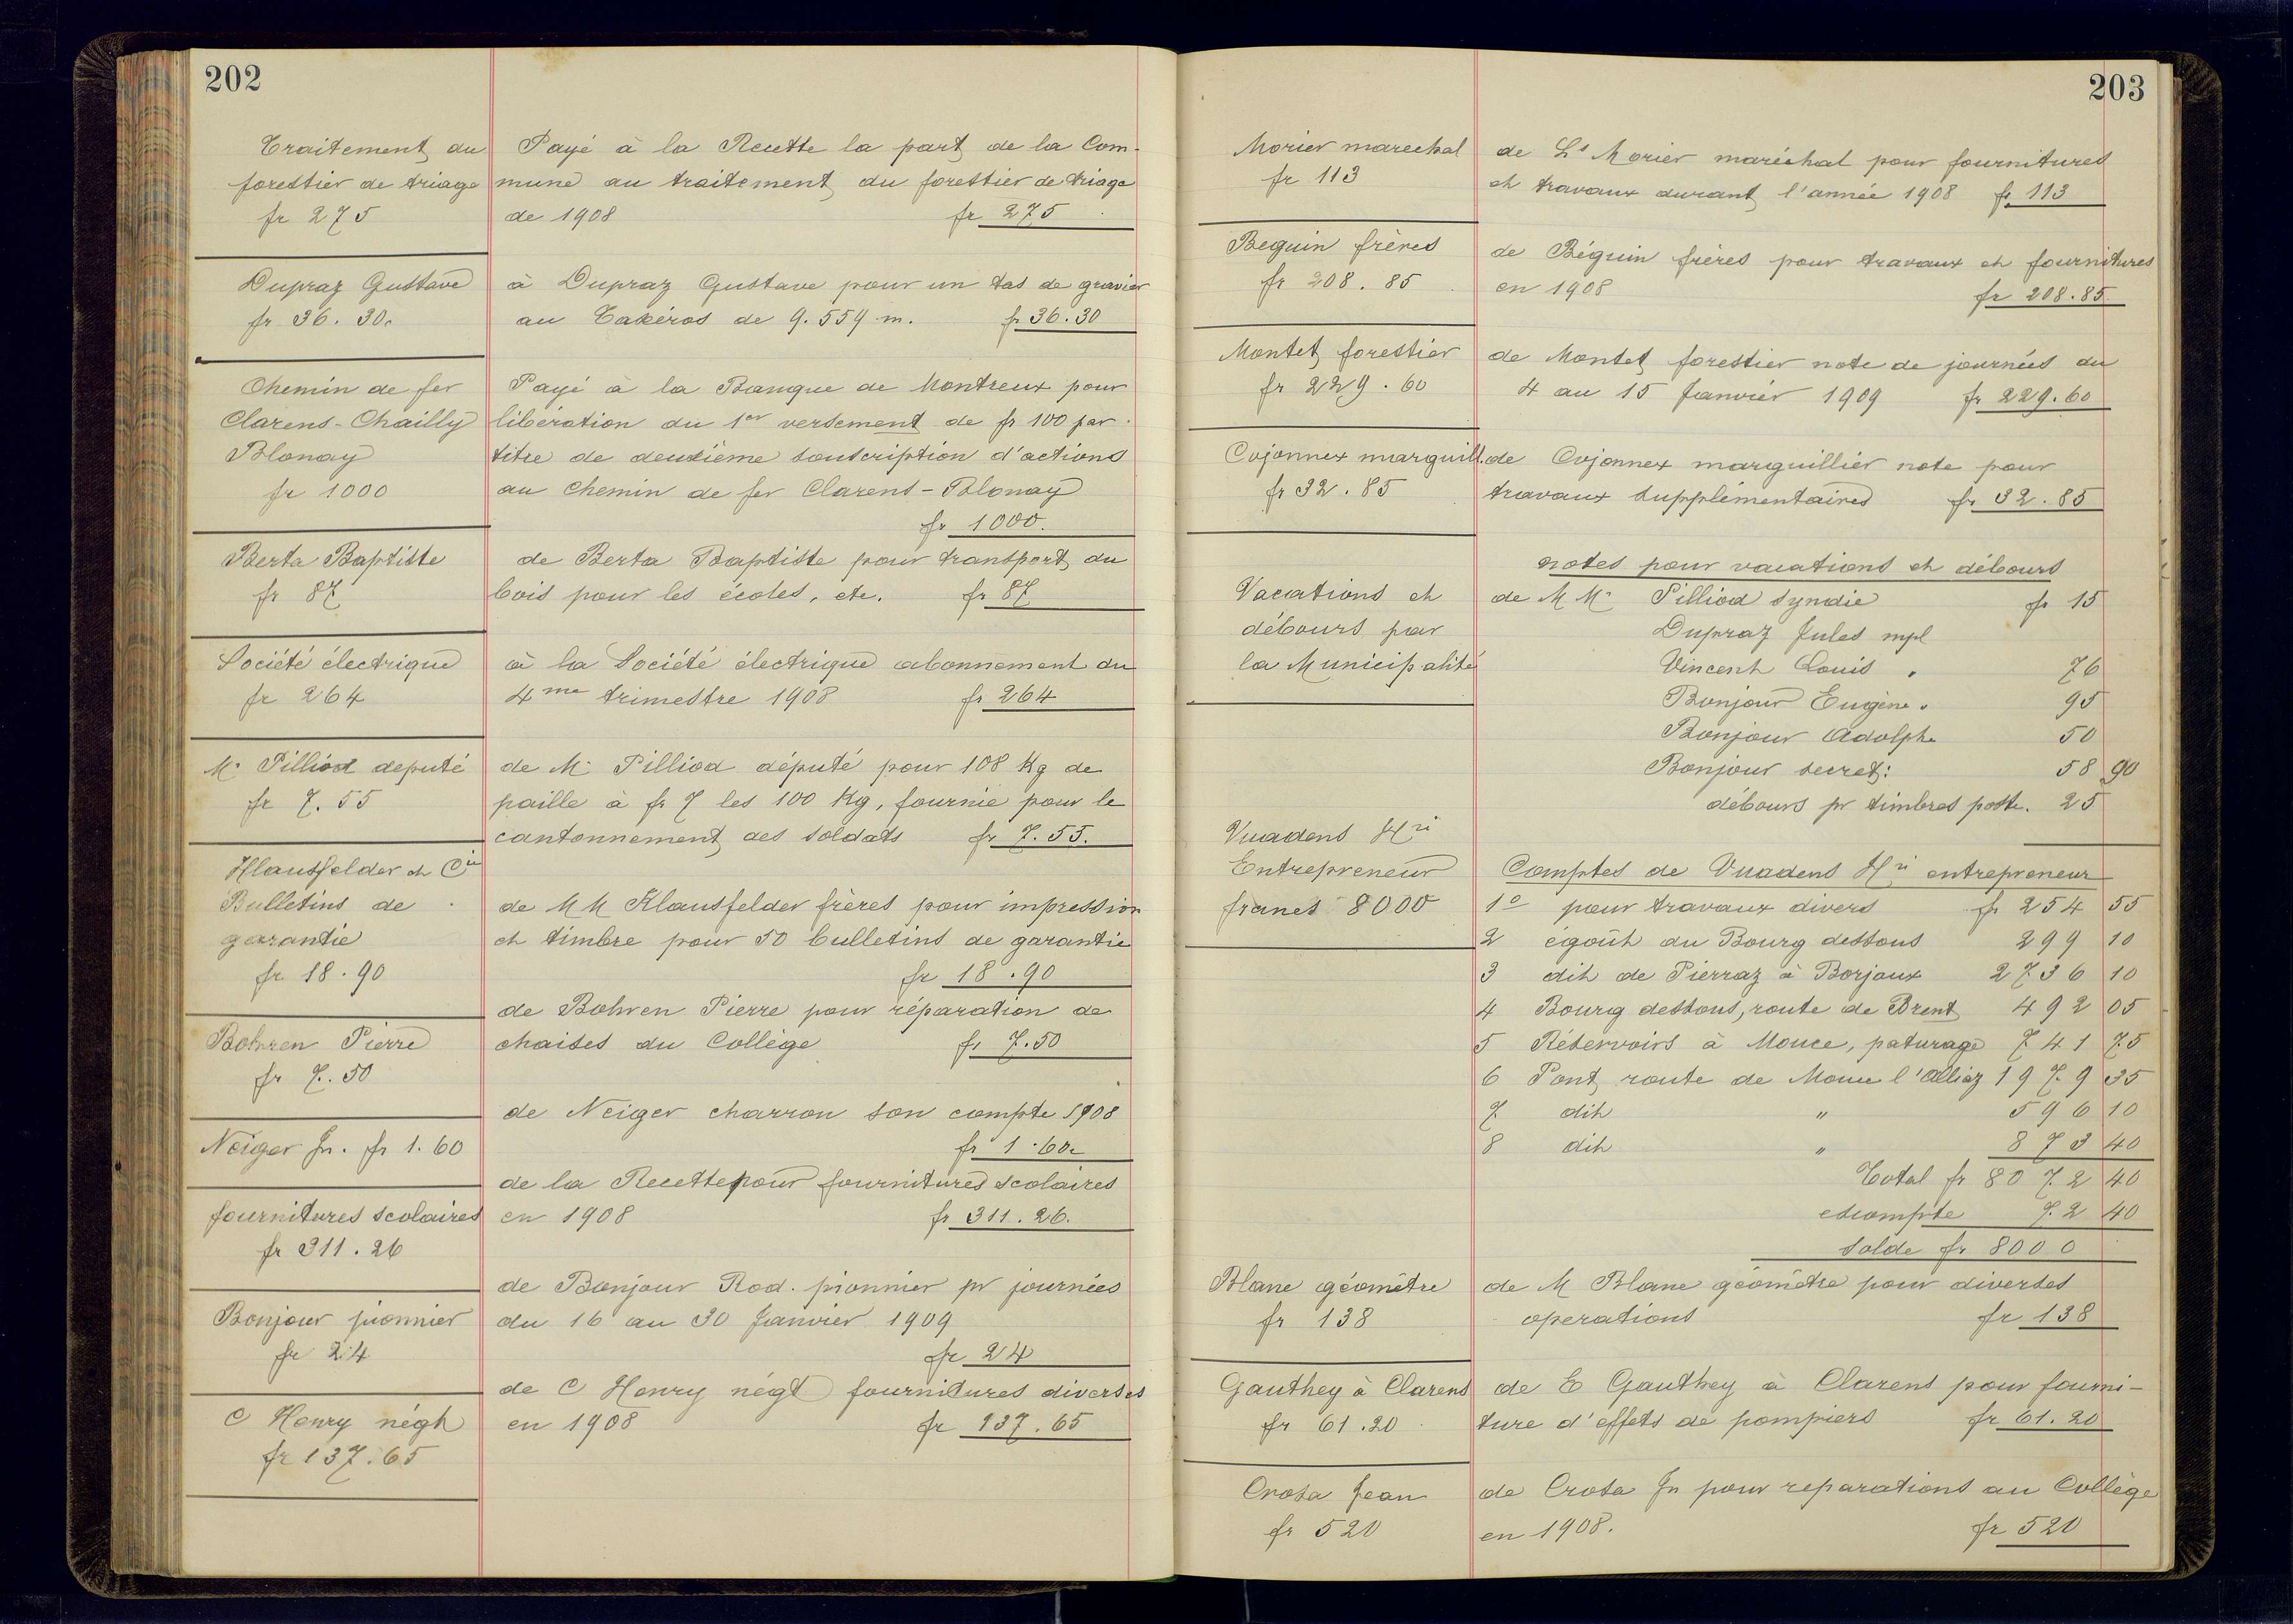 202
Traitement du
forestier de triage
fr 275
Payé à la Recette la part de la Com-
mune au traitement du forestier de triage
de 1908 fr 275
Dupraz Gustave
fr 36.30.
à Dupraz Gustave pour un tas de gravier
au Takéros de 9.559 m. fr 36.30
Chemin de fer
Clarens-Chailly
Blonay
fr 1000
Payé à la Banque de Montreux pour
libération du 1er versement de fr 100 par
titre de deuxième souscription d'actions
au Chemin de fer Clarens-Blonay
fr 1000.
Berta Baptiste
fr 87
de Berta Baptiste pour transport du
bois pour les écoles, etc. fr 87
Société électrique
fr 264
à la Société électrique abonnement du
4me trimestre 1908 fr 264
Mr Pilliod député
fr 7.55
de Mr Pilliod député pour 108 Kg de
paille à fr 7 les 100 Kg, fournie pour le
cantonnement des soldats fr 7.55.
Klausfelder et Cie
Bulletins de
garantie
fr 18.90
de MM Klausfelder frères pour impression
et timbre pour 50 bulletins de garantie
fr 18.90
Bohren Pierre
fr 7.50
de Bohren Pierre pour réparation de
chaises du Collège fr 7.50
Neiger Jn. fr 1.60
de Neiger charron son compte 1908
fr 1.60
fournitures scolaires
fr 311.26
de la Recette pour fournitures scolaires
en 1908 fr 311.26.
Bonjour pionnier
fr 24
de Bonjour Rod. pionnier pr journées
du 16 au 30 Janvier 1909
fr 24
C Henry négt
fr 137.65
de C Henry négt fournitures diverses
en 1908 fr 137.65
203
Morier marechal
fr 113
de Ls Morier maréchal pour fournitures
et travaux durant l'année 1908 fr 113
Beguin frères
fr 208.85
de Béguin frères pour travaux et fournitures
en 1908 fr 208.85
Montet forestier
fr 229.60
de Montet forestier note de journées du
4 au 15 Janvier 1909 fr 229.60
Cojonnex marguill.
fr 32.85
de Cojonnex marguillier note pour
travaux supplémentaires fr 32.85
Vacations et
débours par
la Municipalité
notes pour vacations et débours
de MMrs Pilliod syndic fr 15
Dupraz Jules mpl
Vincent Louis " 76
Bonjour Eugène " 95
Bonjour Adolphe 50
Bonjour secret: 58 90
débours pr timbres poste. 25
Vuadens Hri
Entrepreneur
francs 8000
Comptes de Vuadens Hri entrepreneur
1o pour travaux divers fr 254 55
2 égoût du Bourg dessous 299 10
3 dit de Pierraz à Borjaux 2736 10
4 Bourg dessous, route de Brent 492 05
5 Réservoirs à Mouce, paturage 741 75
6 Pont route de Mouce l'Alliaz 1979 35
7 dit " 596 10
8 dit " 873 40
Total fr 8072 40
escompte 72 40
Solde fr 8000
Blanc géomètre
fr 138
de M Blanc géomètre pour diverses
operations fr 138
Gauthey à Clarens
fr 61.20
de E Gauthey à Clarens pour fourni-
ture d'effets de pompiers fr 61.20
Crota Jean
fr 520
de Crota Jn pour reparations au Collège
en 1908. fr 520